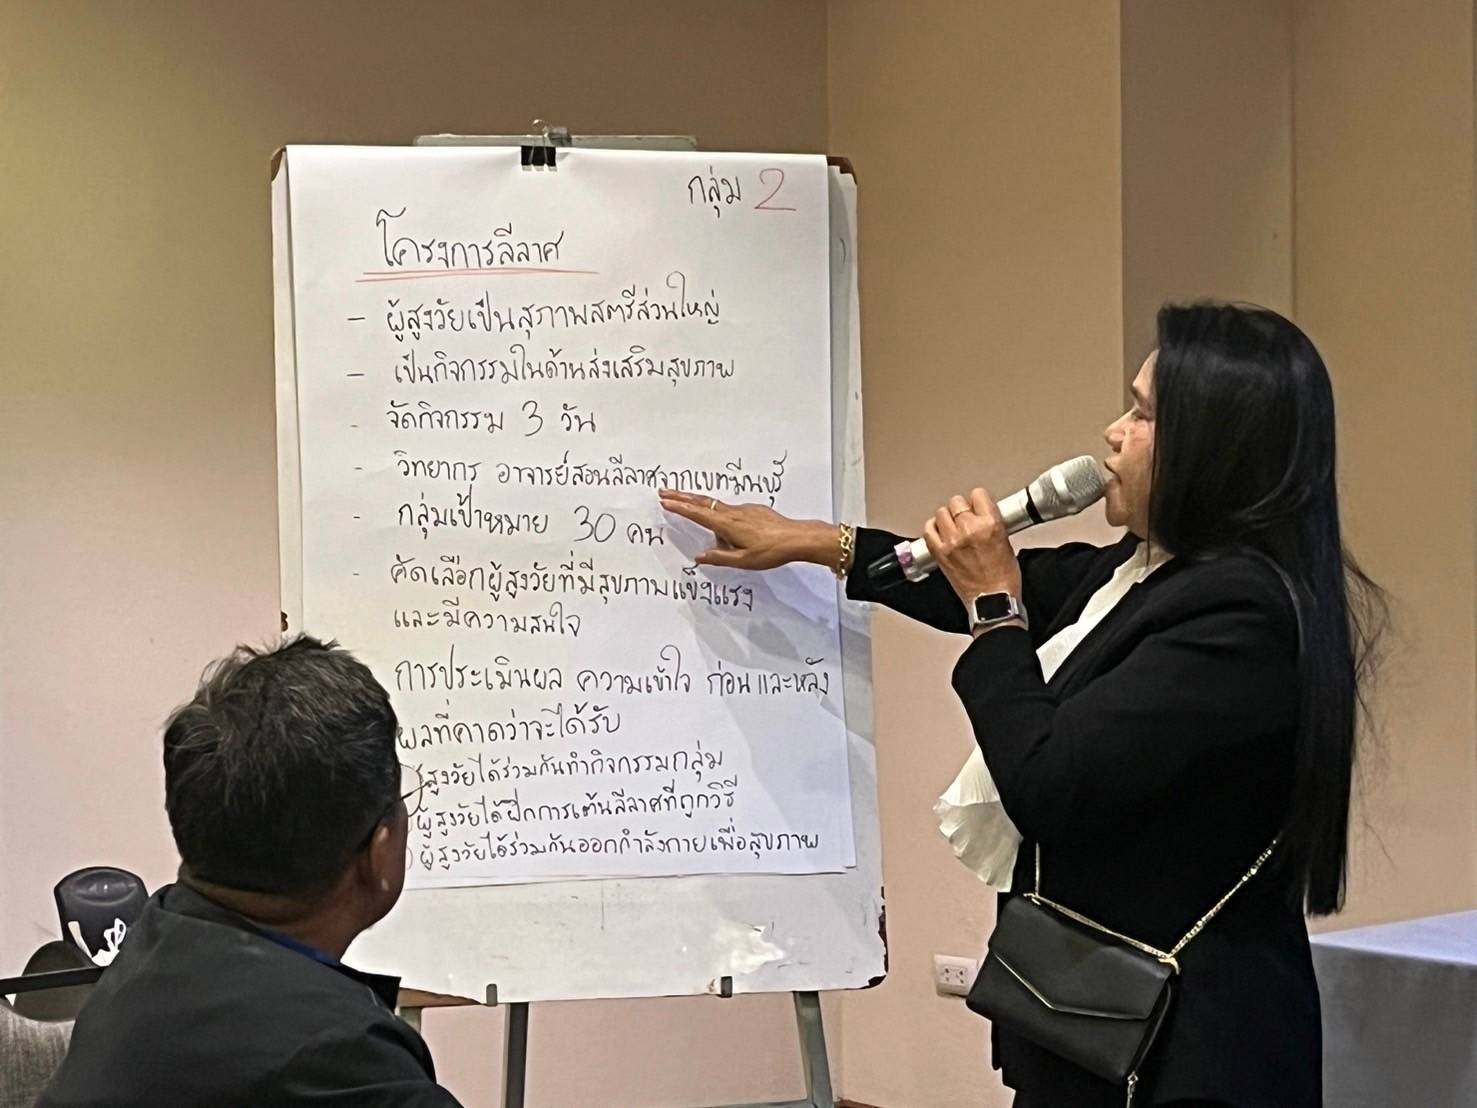 กลุ่ม 2
โครงการลีลาศ
- ผู้สูงวัยเป็นสุภาพสตรีส่วนใหญ่
- เป็นกิจกรรมในด้านส่งเสริมสุขภาพ
- จัดกิจกรรม 3 วัน
- วิทยากร อาจารย์สอนลีลาศจากเขตมีนบุรี
- กลุ่มเป้าหมาย 30 คน
- คัดเลือกผู้สูงวัยที่มีสุขภาพแข็งแรง
และมีความสนใจ
การประเมินผล ความเข้าใจ ก่อนและหลัง
ผลที่คาดว่าจะได้รับ
สูงวัยได้ร่วมกันทำกิจกรรมกลุ่ม
ผู้สูงวัยได้ฝึกการเต้นลีลาศที่ถูกวิธี
ผู้สูงวัยได้ร่วมกันออกกำลังกายเพื่อสุขภาพ